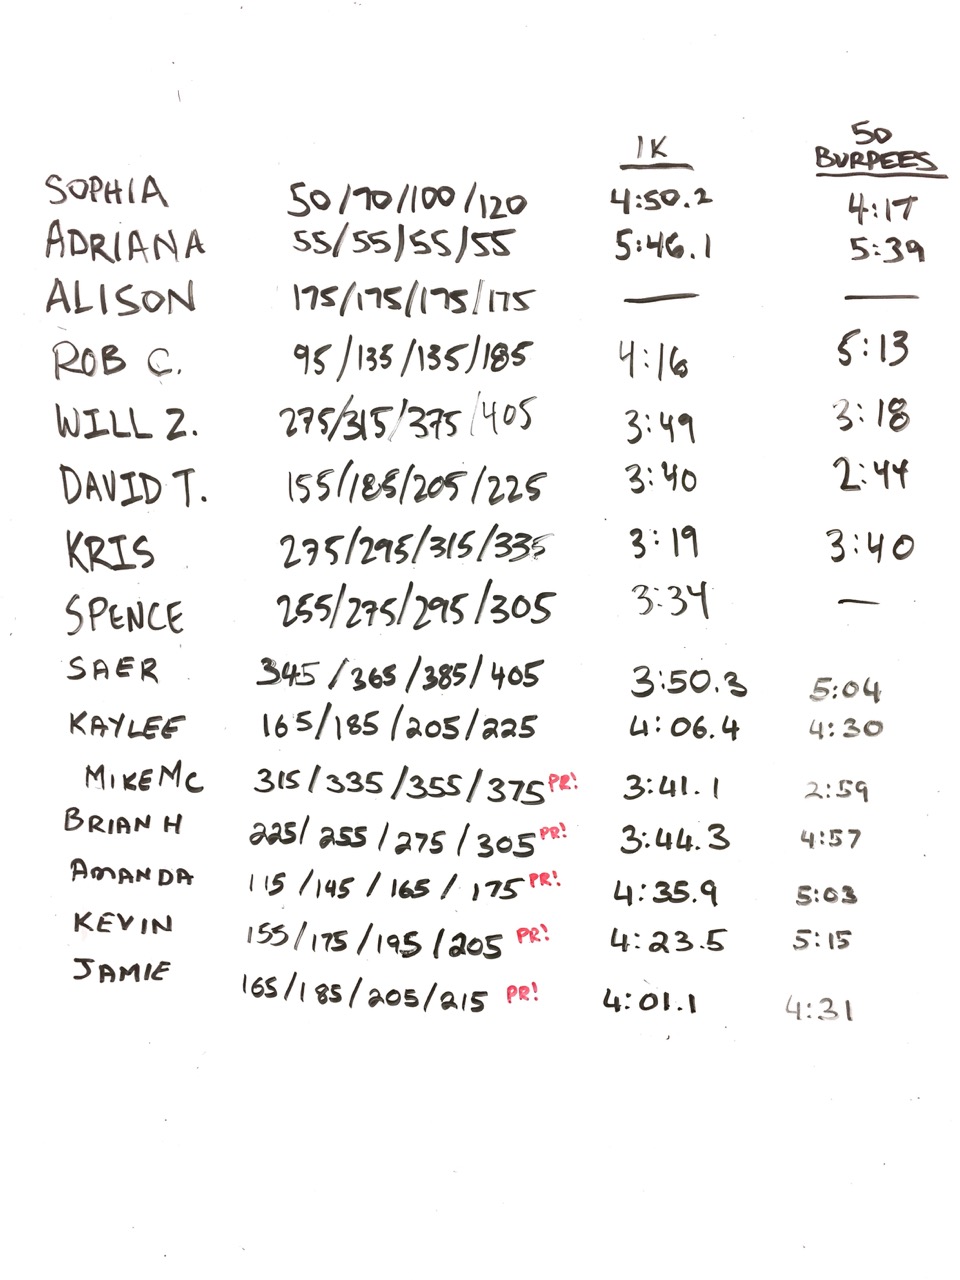 1K 50
BURPEES
SOPHIA 50/70/100/120 4:50.2 4:17
ADRIANA 55/55/55/55 5:46.1 5:39
ALISON 175/175/175/175 — —
ROB C. 95/135/135/185 4:16 5:13
WILL Z. 275/315/375/405 3:49 3:18
DAVID T. 155/185/205/225 3:40 2:44
KRIS 275/295/315/335 3:19 3:40
SPENCE 255/275/295/305 3:34 —
SAER 345/365/385/405 3:50.3 5:04
KAYLEE 165/185/205/225 4:06.4 4:30
MIKE MC 315/335/355/375 PR! 3:41.1 2:59
BRIAN H 225/255/275/305 PR! 3:44.3 4:57
AMANDA 115/145/165/175 PR! 4:35.9 5:03
KEVIN 155/175/195/205 PR! 4:23.5 5:15
JAMIE 165/185/205/215 PR! 4:01.1 4:31